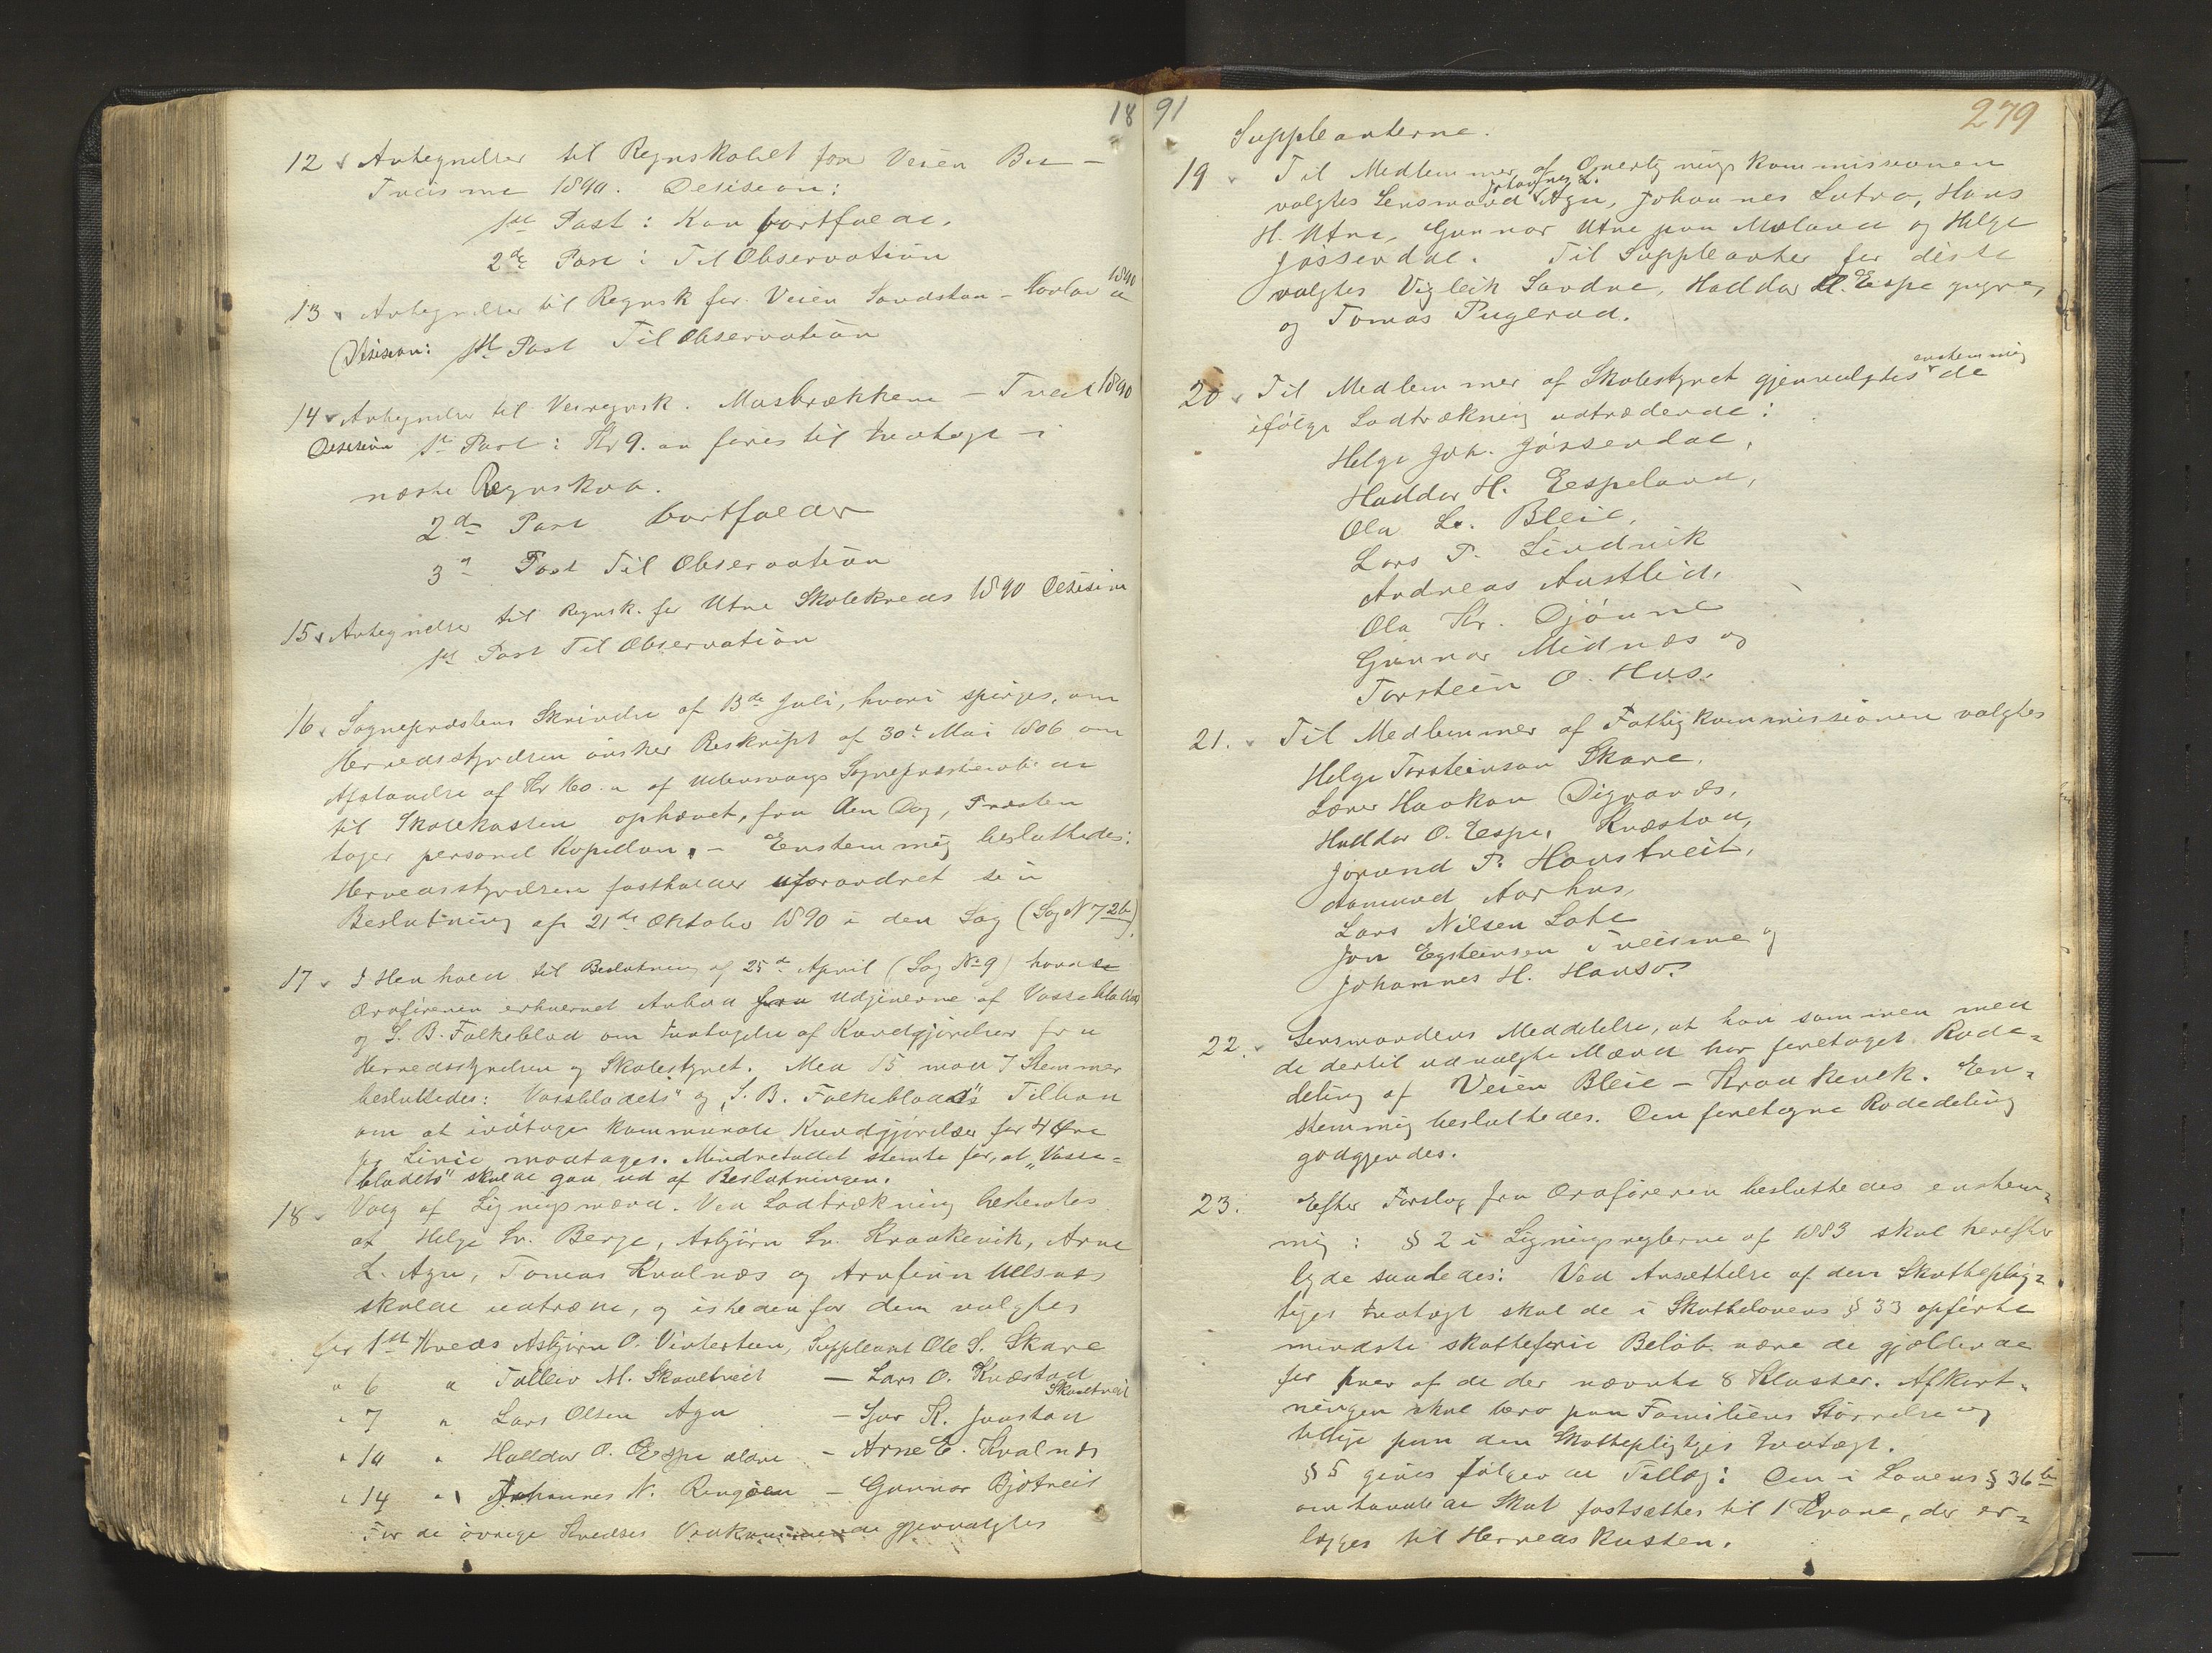 18
12 Antegnelser til Regnskabet for Veien Bu -
Tveisme 1890. Desision:
1ste Post: Kan bortfalde.
2den Post: Til Observation
13 Antegnelser til Regnsk for Veien Sandstøa - 1890
Desision: 1ste Post Til Observation
14 Antegnelser til Veiregnsk. Maabrækkene - Tveit 1890
Desision 1ste Post: Kr 9.00 føres til Indtægt i
næste Regnskab.
2den Post bortfalder
3die Post Til Observation
15 Antegnelser til Regnsk. for Utne Skolekreds 1890 Desision
1ste Post Til Observation
16. Sognepræstens Skrivelse af 13de Juli, hvori spørges, om
Herredsstyrelsen ønsker Reskript af 30te Mai 1806 om
Afstaaelse af Kr 160.00 af Ullensvangs Sognepræstembede
til Skolekassen ophævet, fra den Dag, Præsten
tager personel Kapellan. - Enstemmig besluttedes:
Herredsstyrelsen fastholder uforandret sin
Beslutning af 21de Oktober 1890 i den Sag (Sag N 72b).
17 I Henhold til Beslutning af 25de April (Sag No 9) havde
Ordføreren erhvervet Anbud fra Udgiverne af Vossebladet
og S. B. Folkeblad om Indtagelse af Kundgjørelser fra
Herredsstyrelsen og Skolestyret. Med 15 mod 7 Stemmer
besluttedes: "Vossebladets" og "S. B. Folkeblads" Tilbud
om at indtage kommunale Kundgjørelser for 4 Øre
pr Linie modtages. Mindretallet stemte for, at "Vosse=
bladets" skulde gaa ud af Beslutningen.
18 Valg af Ligningsmænd. Ved Lodtrækning bestemtes
at Helge Sv. Berge, Asbjørn Sv. Kraakevik, Arne
L. Aga, Tomas Kvalnæs og Arnfinn Ullsnæs
skulde udtræde, og istedenfor dem valgtes
for 1ste Kreds Asbjørn O. Vintertun, Suppleant Ole S. Skare
" 6 " Tolleiv M. Skaaltveit - Lars O. Kvæstad
Skaaltveit
" 7 " Lars Olsen Aga - Sjur K. Jaastad
" 10 " Haldor O. Espe ældre - Arne E. Kvalnæs
" 14 " Johannes N. Ringøen - Gunnar Bjotveit
For de øvrige Kredse Vedkommende gjenvalgtes
91
279
Suppleanterne.
19 Til Medlemmer af Overligningskommissionen
valgtes Lensmand Aga, Johannes Lutro, Hans
H. Utne, Gunnar Utne paa Mæland og Helge
Jøssendal. Til Suppleanter for disse
valgtes Vigleik Sandve, Haldor H. Espe yngre,
og Tomas Pugerud.
20 Til Medlemmer af Skolestyret gjenvalgtes enstemmig de
ifølge Lodtrækning udtrædende:
Helge Joh. Jøssendal,
Haldor H. Espeland,
Ola L. Bleie,
Lars P. Lindvik
Andreas Austlid,
Ola Kr. Djønne
Gunnar Midnæs og
Torstein O. Hus.
21. Til Medlemmer af Fattigkommissionen valgtes
Helge Torsteinson Skare,
Lærer Haakon Digranæs,
Haldor O. Espe, Kvæstad,
Jørund P. Haustveit,
Aamund Aarhus,
Lars Nilsen Lote
Jon Egsteinsen Tveisme og
Johannes H. Hauso.
22. Lensmandens Meddelelse, at han sammen med
de dertil udvalgte Mænd har foretaget Rode=
deling af Veien Bleie - Kraakevik. En=
stemmig besluttedes. Den foretagne Rodedeling
godkjendes.
23. Efter Forslag fra Ordføreren besluttedes enstem=
mig: § 2 i Ligningsreglerne af 1883 skal herefter
lyde saaledes: Ved Ansættelse af den Skattepligt=
tiges Indtægt skal de i Skattelovens § 33 opførte
mindste skattefrie Beløb være de gjældende
for hver af de der nævnte 8 Klasser. Afkort=
ningen skal bero paa Familiens Størrelse og
tillige paa den Skattepligtiges Indtægt.
§ 5 gives følgende Tillæg: Den i Lovens § 36 b
omhandlede Skat fastsættes til 1 Krone, der er=
lægges til Herredskassen.